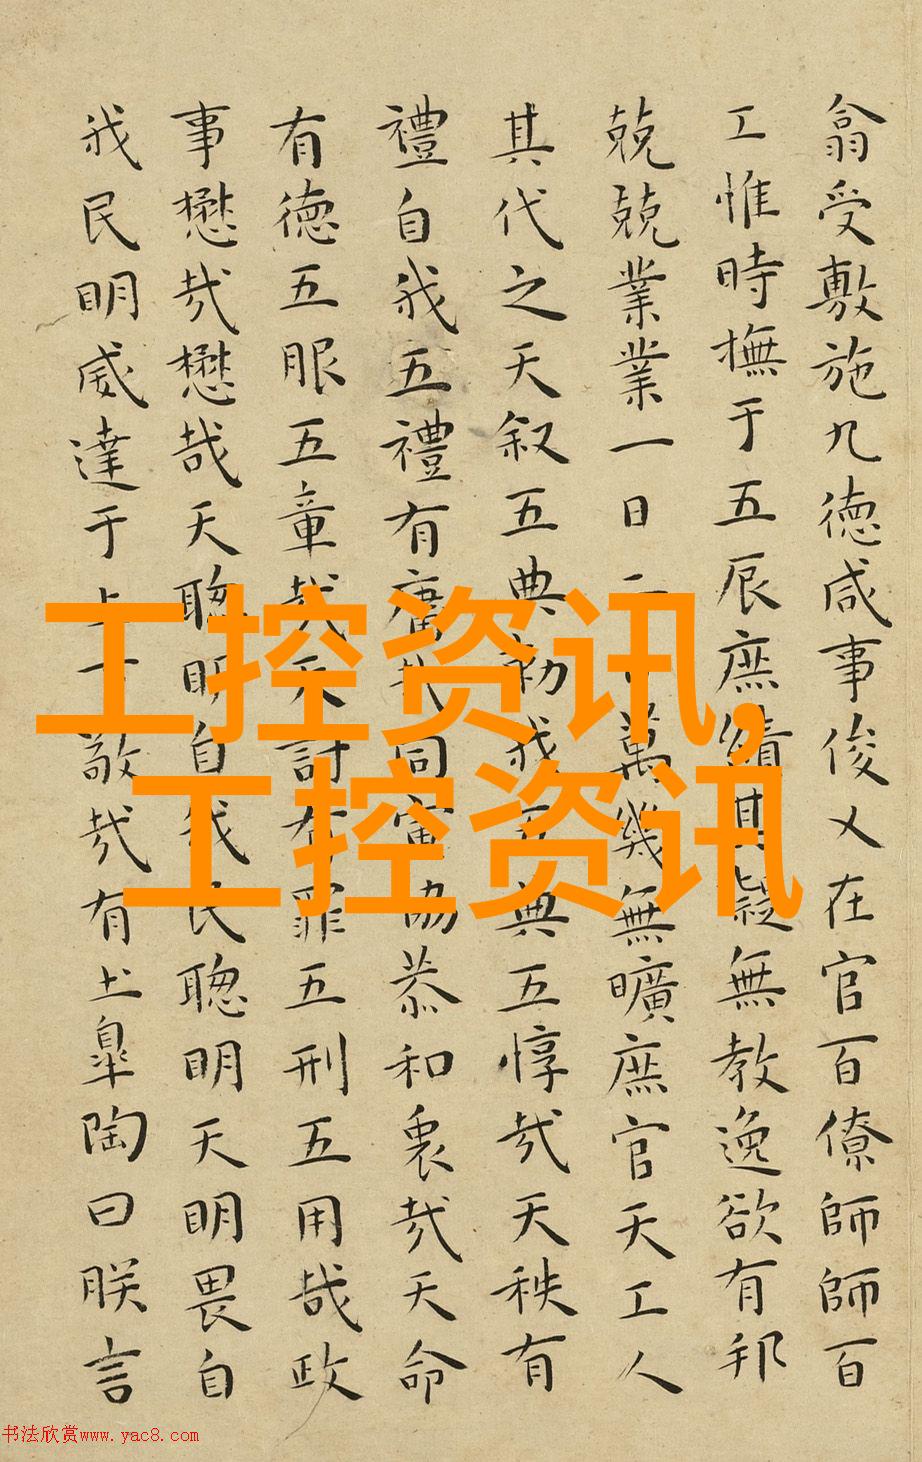 翕受敷施九德咸事俊乂在官百僚師師百
工惟時撫于五辰庶績其凝無教逸欲有邦
兢兢業業一日二日萬幾無曠庶官天工人
其代之天叙五典勑我五典五惇哉天秩有
禮自我五禮有庸哉同寅協恭和衷哉天命
有德五服五章哉天討有罪五刑五用哉政
事懋哉懋哉天聰明自我民聰明天明畏自
我民明威達于上下敬哉有土皐陶曰朕言
工控资讯,
工控资讯
书法欣赏www.yac8.com